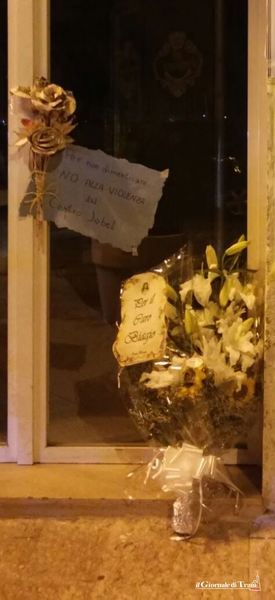 Per non dimenticare
NO ALLA VIOLENZA
dal
Centro Jobel
Per il
Caro
Biagio
il Giornale di Trani